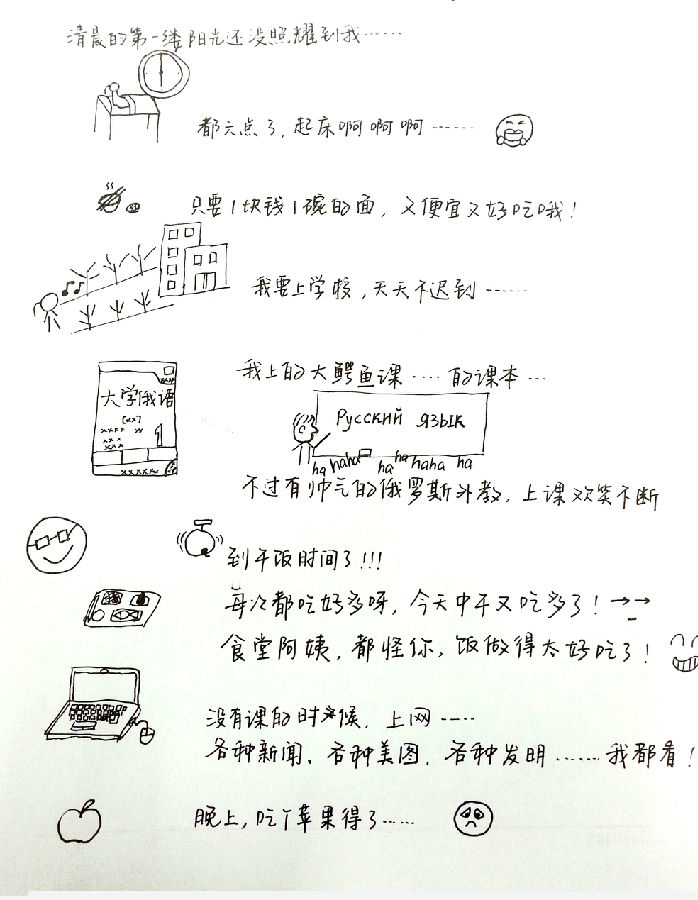 清晨的第一缕阳光还没照耀到我……
都六点了，起床啊啊啊……
只要1块钱1碗的面，又便宜又好吃哦！
我要上学校，天天不迟到……
我上的大鳄鱼课……的课本…
大学俄语
Русский язык
ha haha ha ha haha ha
不过有帅气的俄罗斯外教，上课欢笑不断
到午饭时间了!!!
每次都吃好多呀，今天中午又吃多了！→→
食堂阿姨，都怪你，饭做得太好吃了！
没有课的时候，上网……
各种新闻、各种美图、各种发明……我都看！
晚上，吃个苹果得了……